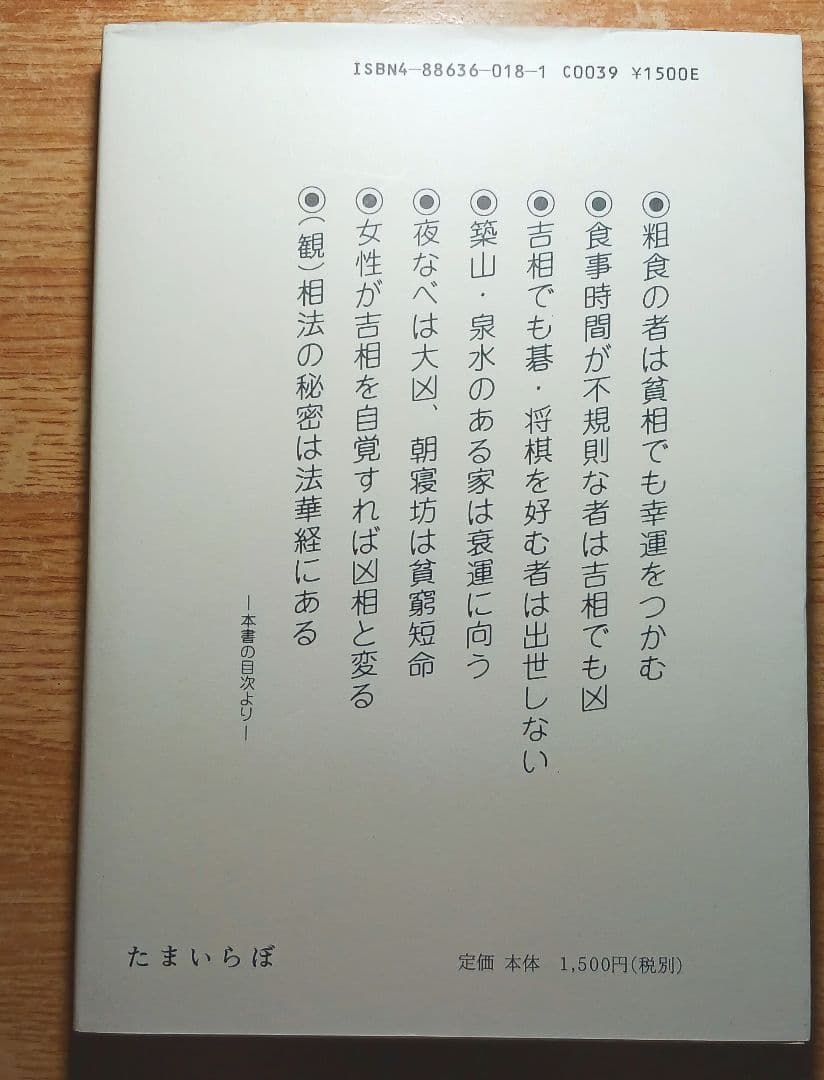 ISBN4-88636-018-1 C0039 ¥1500E
◉粗食の者は貧相でも幸運をつかむ
◉食事時間が不規則な者は吉相でも凶
◉吉相でも碁・将棋を好む者は出世しない
◉築山・泉水のある家は衰運に向う
◉夜なべは大凶、朝寝坊は貧窮短命
◉女性が吉相を自覚すれば凶相と変る
◉(観)相法の秘密は法華経にある
―本書の目次より―
たまいらぼ
定価 本体 1,500円(税別)